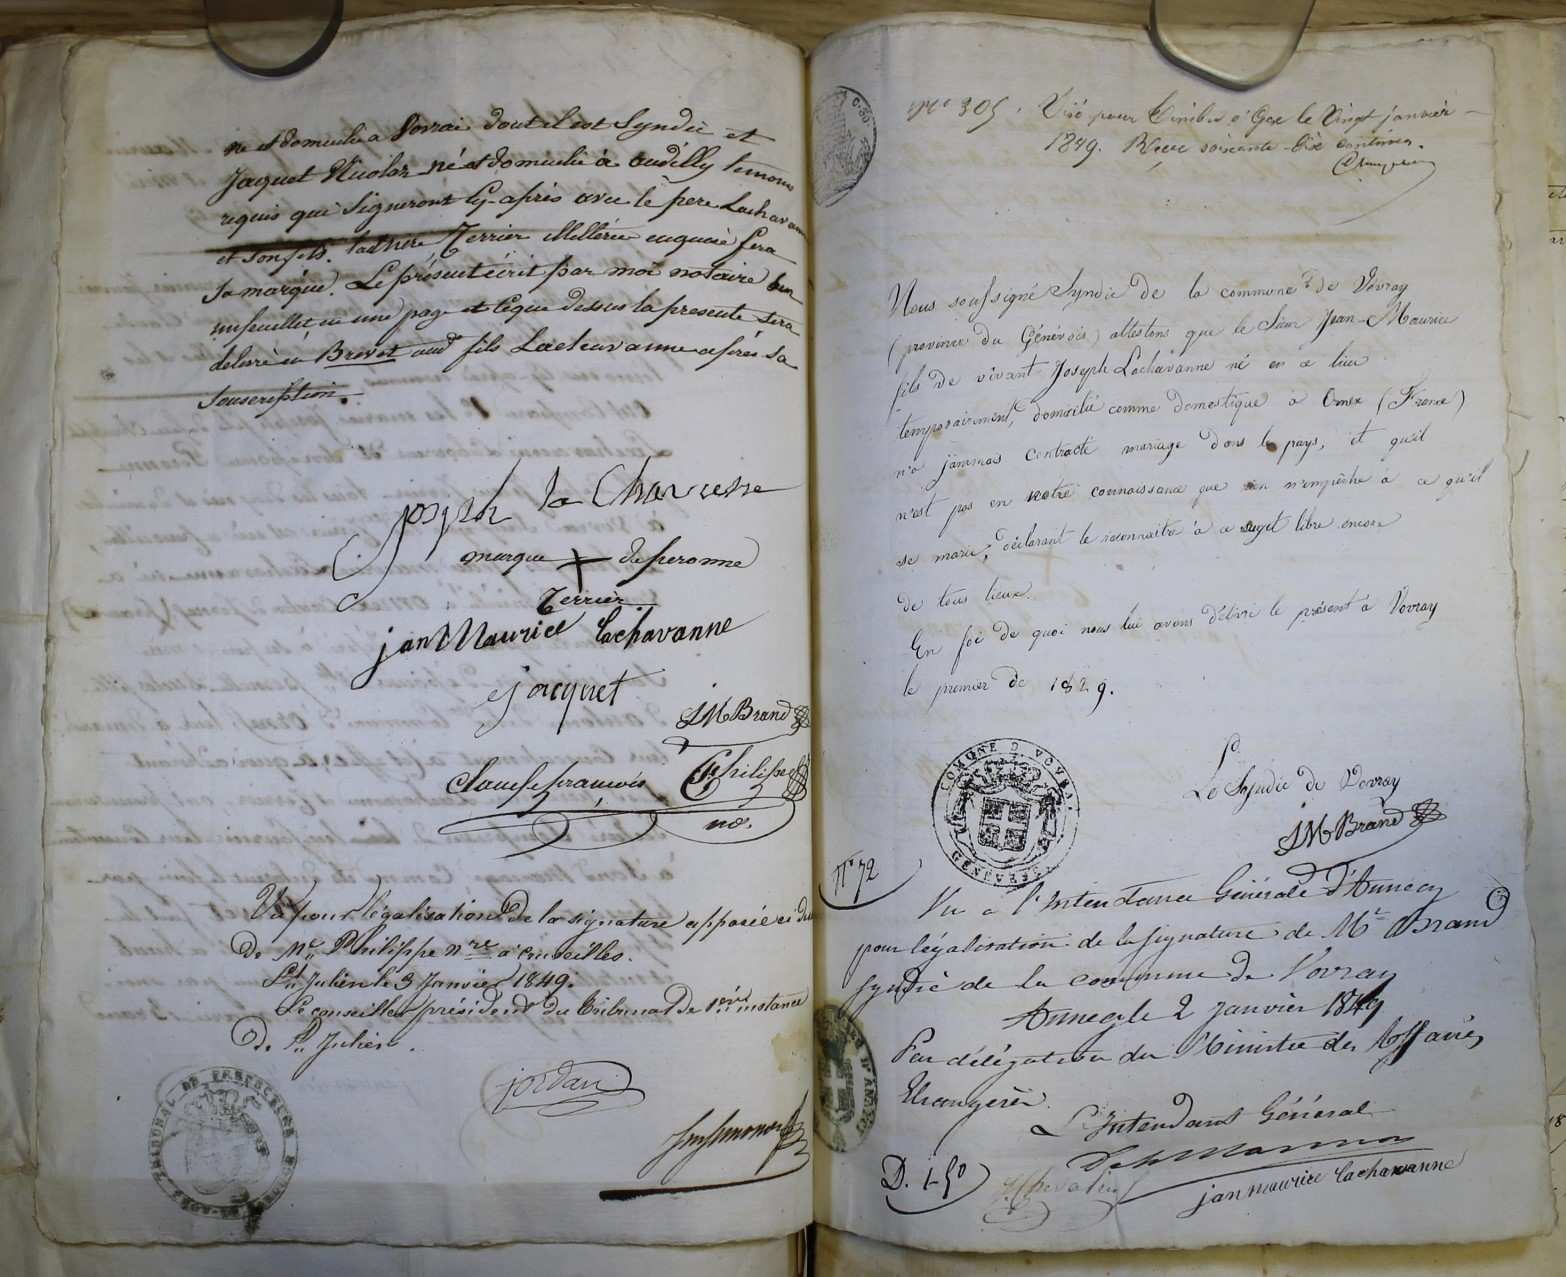 né et domicilié à Vovrai dont il est Syndic et
Jaquet Nicolas né et domicilié à andilly temoins
requis qui Signeront Cy-après avec le pere Lachavanne
et son fils. ladite Terrier illétérée enquise fera
Sa marque. Le présent écrit par moi notaire
un feuillet une page et ce que dessus la presente sera
delivré en Brevet aud fils Lachavanne après sa
Souscription.
joseph la Chavanne
marque de peronne
Terrier
jan Maurice Lachavanne
jacquet
JM Brand
Claude françois Philippe
no.
Vu pour légalisation de la signature apposée ci
De Me Philippe nre à Cruseilles.
St Julien le 3 Janvier 1849.
Le conseiller président du Tribunal de 1ere instance
De St Julien.
jordan
TRIBUNAL DE PREFECTURE
No 305. Visé pour timbre à Gex le Vingt janvier
1849. Reçu soixante-dix centimes.
Nous soussigné Syndic de la commune de Vovray
(province du Génévois) attestons que le Sieur Jean-Maurice
fils de vivant Joseph Lachavanne né en ce lieu
temporairement domicilié comme domestique à Ornex (France)
n'a jammais contracté mariage dans le pays, et qu'il
n'est pas en notre connaissance que rien n'empêche à ce qu'il
se marie, déclarant le reconnaitre à ce sujet libre encore
de tous lieux.
En foi de quoi nous lui avons délivré le présent à Vovray
le premier de 1849.
Le Syndic de Vovray
JM Brand
COMUNE D. VOVRA.
GENEVESE
No 72
Vu à l'Intendance Générale d'Annecy
pour légalisation de la signature de Mr Brand
syndic de la commune de Vovray
Annecy le 2 janvier 1849
Par délégation du Ministre des Affaires
Etrangères.
L'Intendant Général
D. 1-50
jan maurice Lachavanne